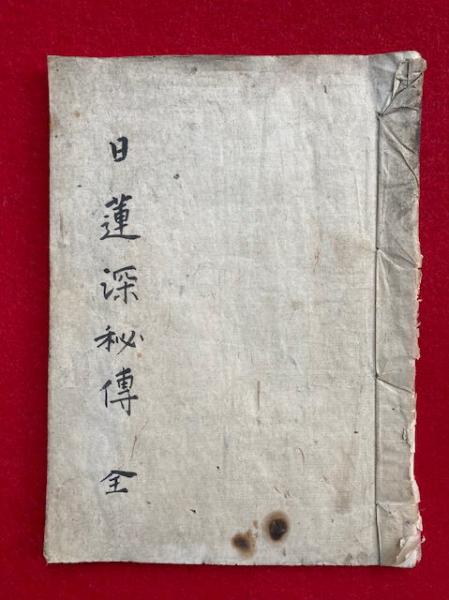 日蓮深秘傳 全